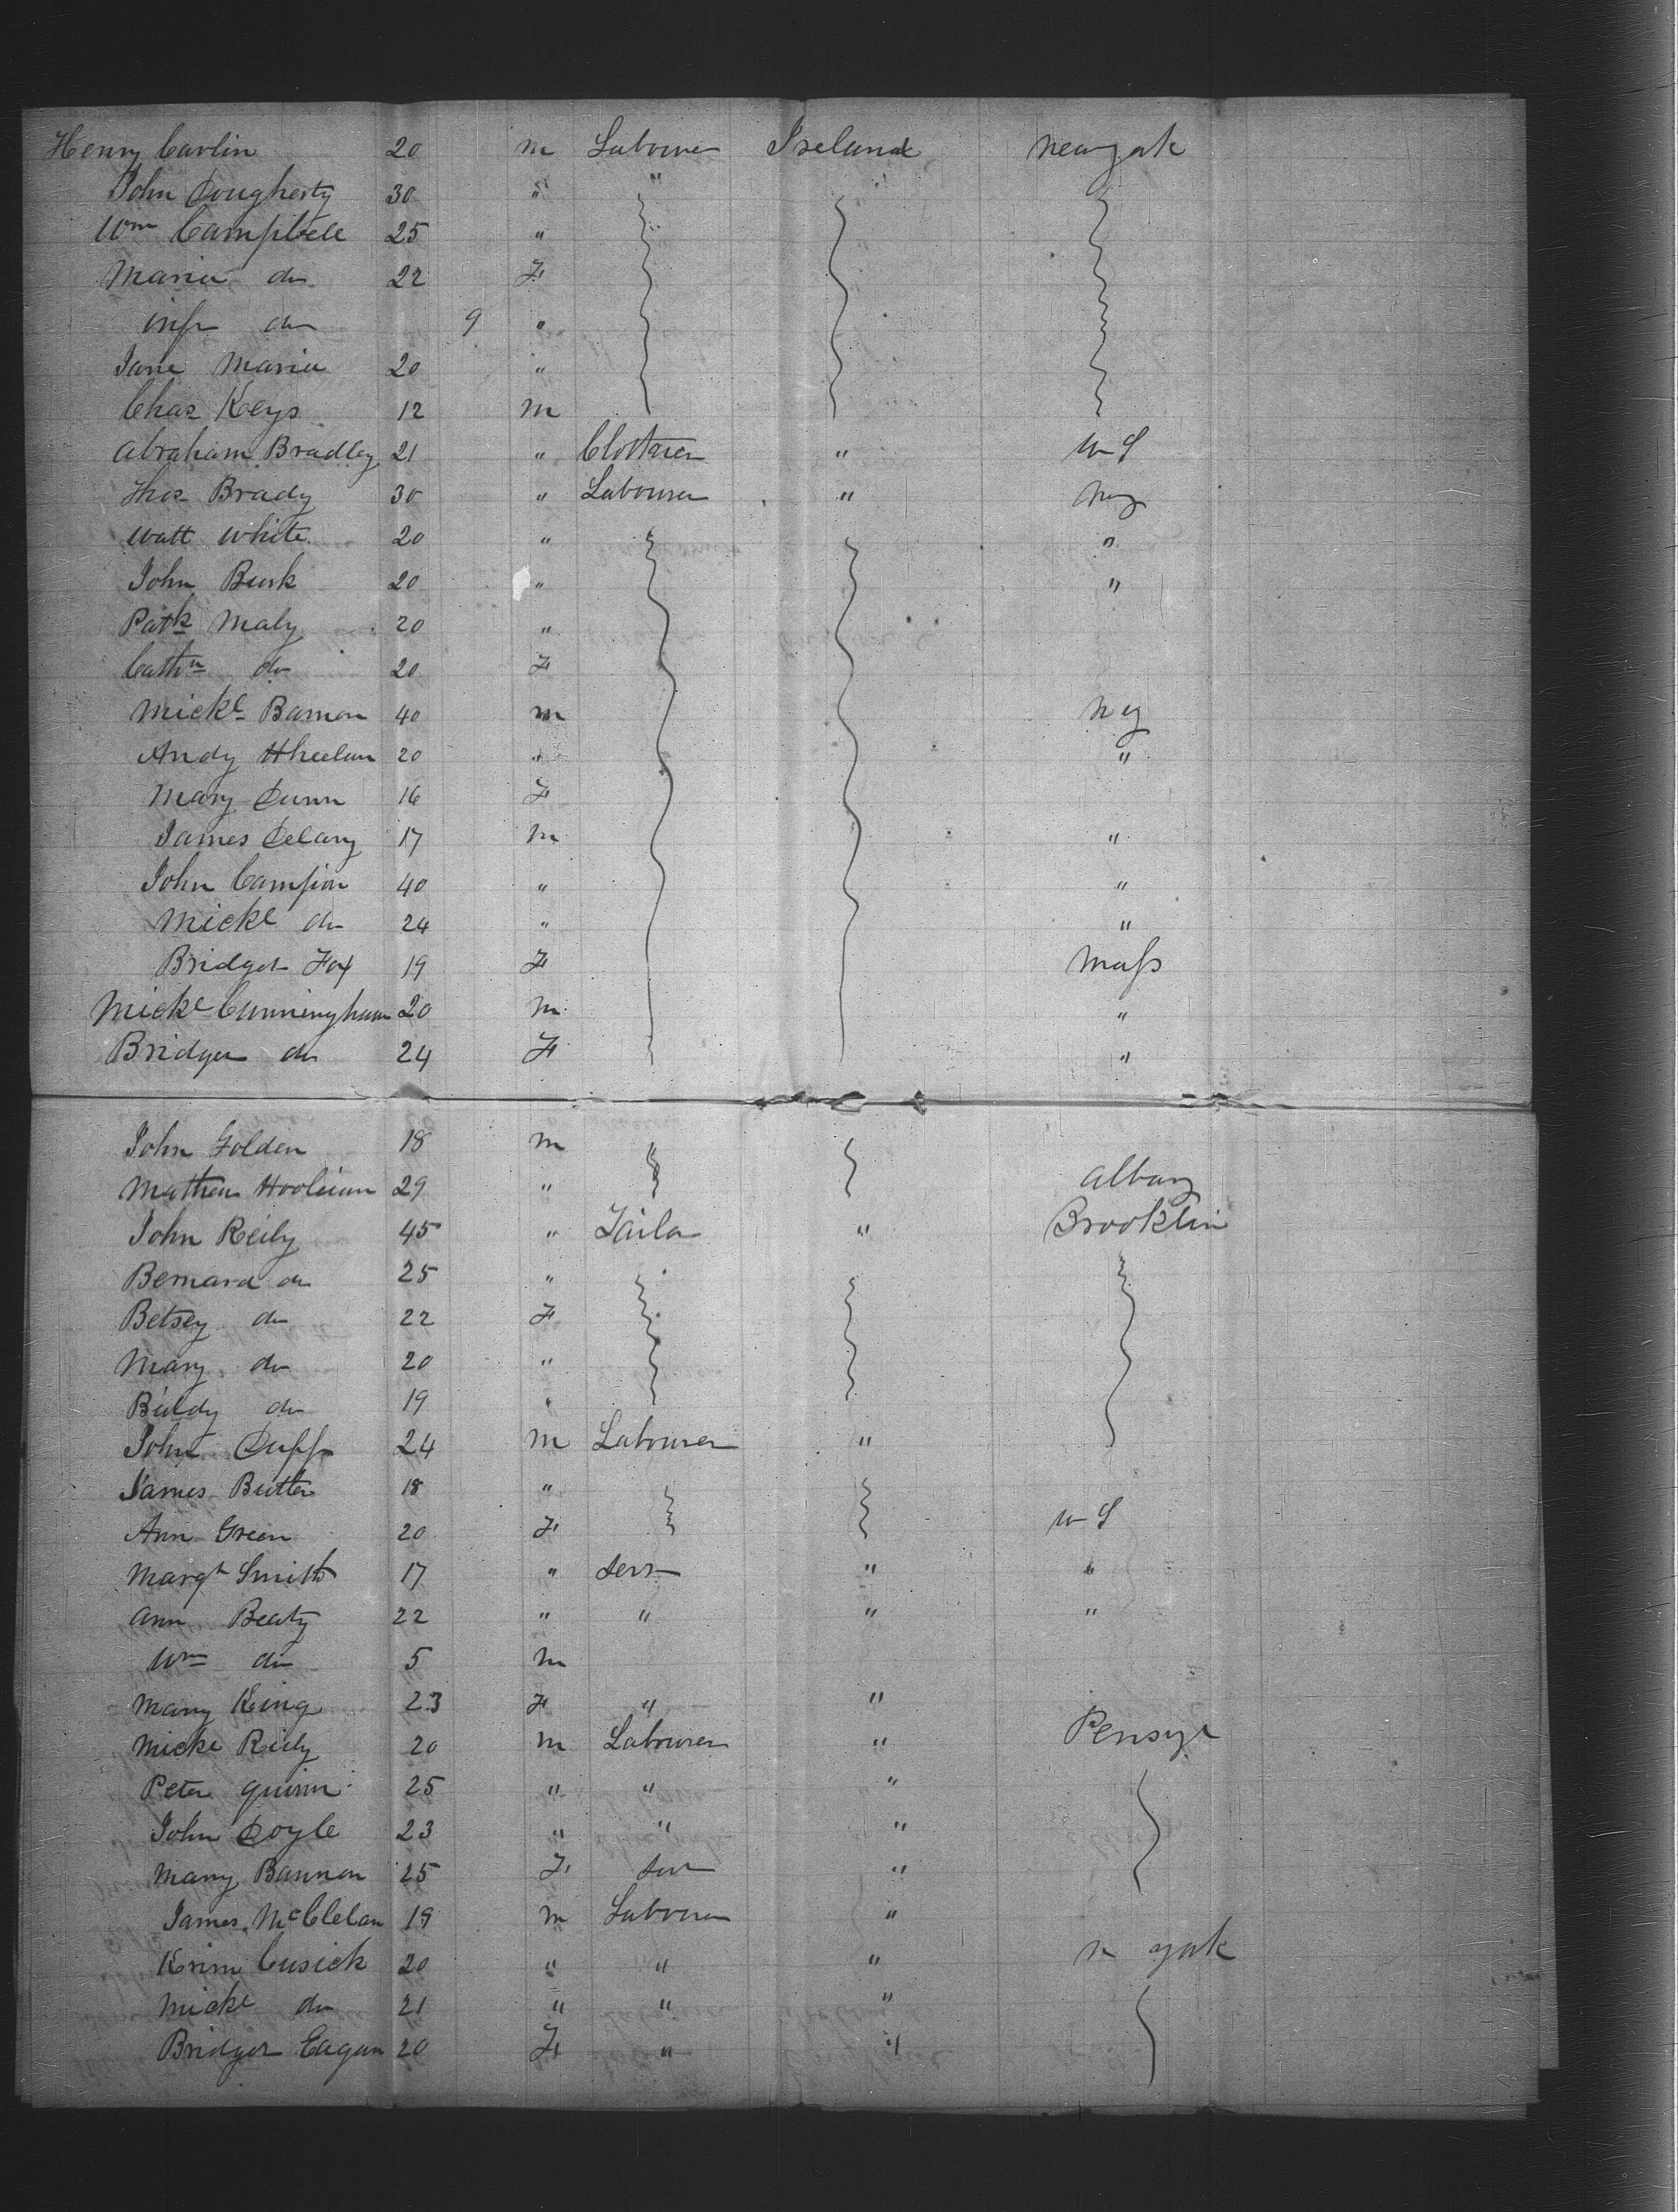 Henry Carlin 20 m Labourer Ireland new york
John Dougherty 30 " "
Wm Campbell 25 "
Maria do 22 F
inft do 9 "
Jane Maria 20 "
Chas Keys 12 m
Abraham Bradley 21 " Clothier " U S
Thos Brady 30 " Labourer " N y
Watt White 20 " "
John Burk 20 " "
Patk Maly 20 "
Cathn do 20 F
Mickl Bannon 40 m N y
Andy Wheelan 20 " "
Mary Dunn 16 F
James Delany 17 m "
John Campion 40 " "
Mickl do 24 " "
Bridget Fox 19 F Mass
Mickl Cunningham 20 m "
Bridget do 24 F "
John Golden 18 m
Mathew 29 " Albany
John Reily 45 " Tailor " Brooklin
Bernard do 25 "
Betsey do 22 F
Mary do 20 "
Biddy do 19 "
John Duff 24 m Labourer "
James Butler 18 "
Ann Green 20 F U S
Margt Smith 17 " Servt " "
Ann Beaty 22 " " " "
Wm do 5 m
Mary King 23 F " "
Mickl Reily 20 m Labourer " Pensyl
Peter Quinn 25 " " "
John Doyle 23 " " "
Mary Bannon 25 F Servt "
James McClelan 19 m Labourer "
Cusick 20 " " " N york
Mickl do 21 " " "
Bridget Eagan 20 F " "